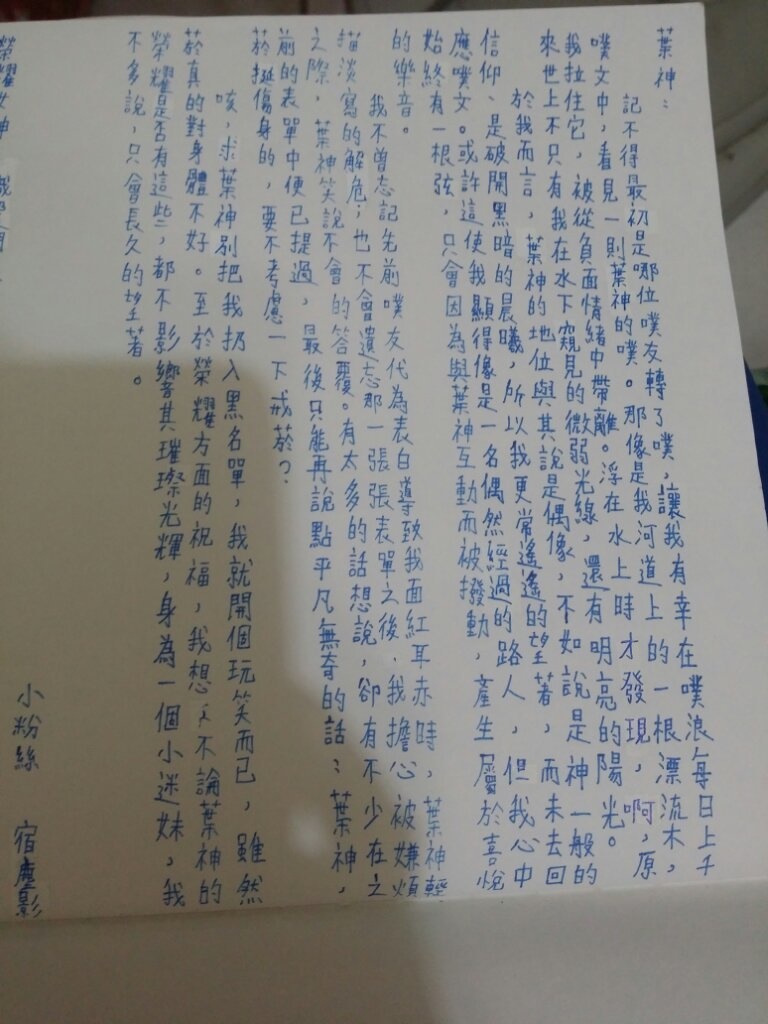 葉神：
記不得最初是哪位噗友轉了噗，讓我有幸在噗浪每日上千
噗文中，看見一則葉神的噗。那像是我河道上的一根漂流木，
我拉住它，被從負面情緒中帶離。浮在水上時才發現，啊，原
來世上不只有我在水下窺見的微弱光線，還有明亮的陽光。
於我而言，葉神的地位與其說是偶像，不如說是神一般的
信仰、是破開黑暗的晨曦，所以我更常遙遙的望著，而未去回
應噗文。或許這使我顯得像是一名偶然經過的路人，但我心中
始終有一根弦，只會因為與葉神互動而被撥動，產生屬於喜悅
的樂音。
我不曾忘記先前噗友代為表白導致我面紅耳赤時，葉神輕
描淡寫的解危；也不會遺忘那一張張表單之後，我擔心被嫌煩
之際，葉神笑說不會的答覆。有太多的話想說，卻有不少在之
前的表單中便已提過，最後只能再說點平凡無奇的話：葉神，
菸挺傷身的，要不考慮一下戒菸？
咳，求葉神別把我扔入黑名單，我就開個玩笑而已，雖然
菸真的對身體不好。至於榮耀方面的祝福，我想，不論葉神的
榮耀是否有這些，都不影響其璀璨光輝，身為一個小迷妹，我
不多說，只會長久的望著。
小粉絲 宿塵影
榮耀女神